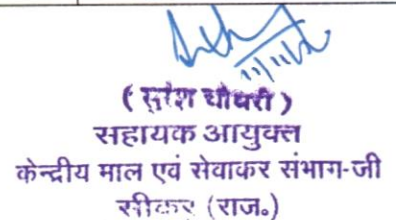 ( सुरेश चौधरी )
सहायक आयुक्त
केन्द्रीय माल एवं सेवाकर संभाग-जी
सीकर (राज०)